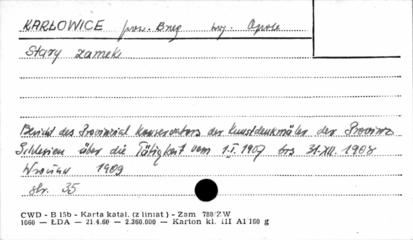 KARŁOWICE pow. Brzeg woj. Opole
Stary zamek
Bericht des Provinzial Konservators der Kunstdenkmäler der Provinz
Schlesien über die Tätigkeit vom 1.I.1907 bis 31.XII.1908
Wrocław 1909
str. 35
CWD - B 15b - Karta katal. (z liniat) - Zam 788/ZW
1660 - ŁDA - 21.4.60 - 2.360.000 - Karton kl. III A1 160 g